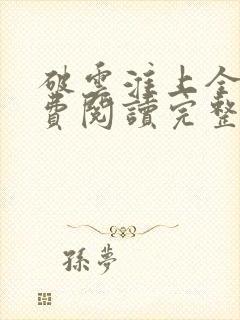 破雲淮上全
費閱讀完整
孫夢